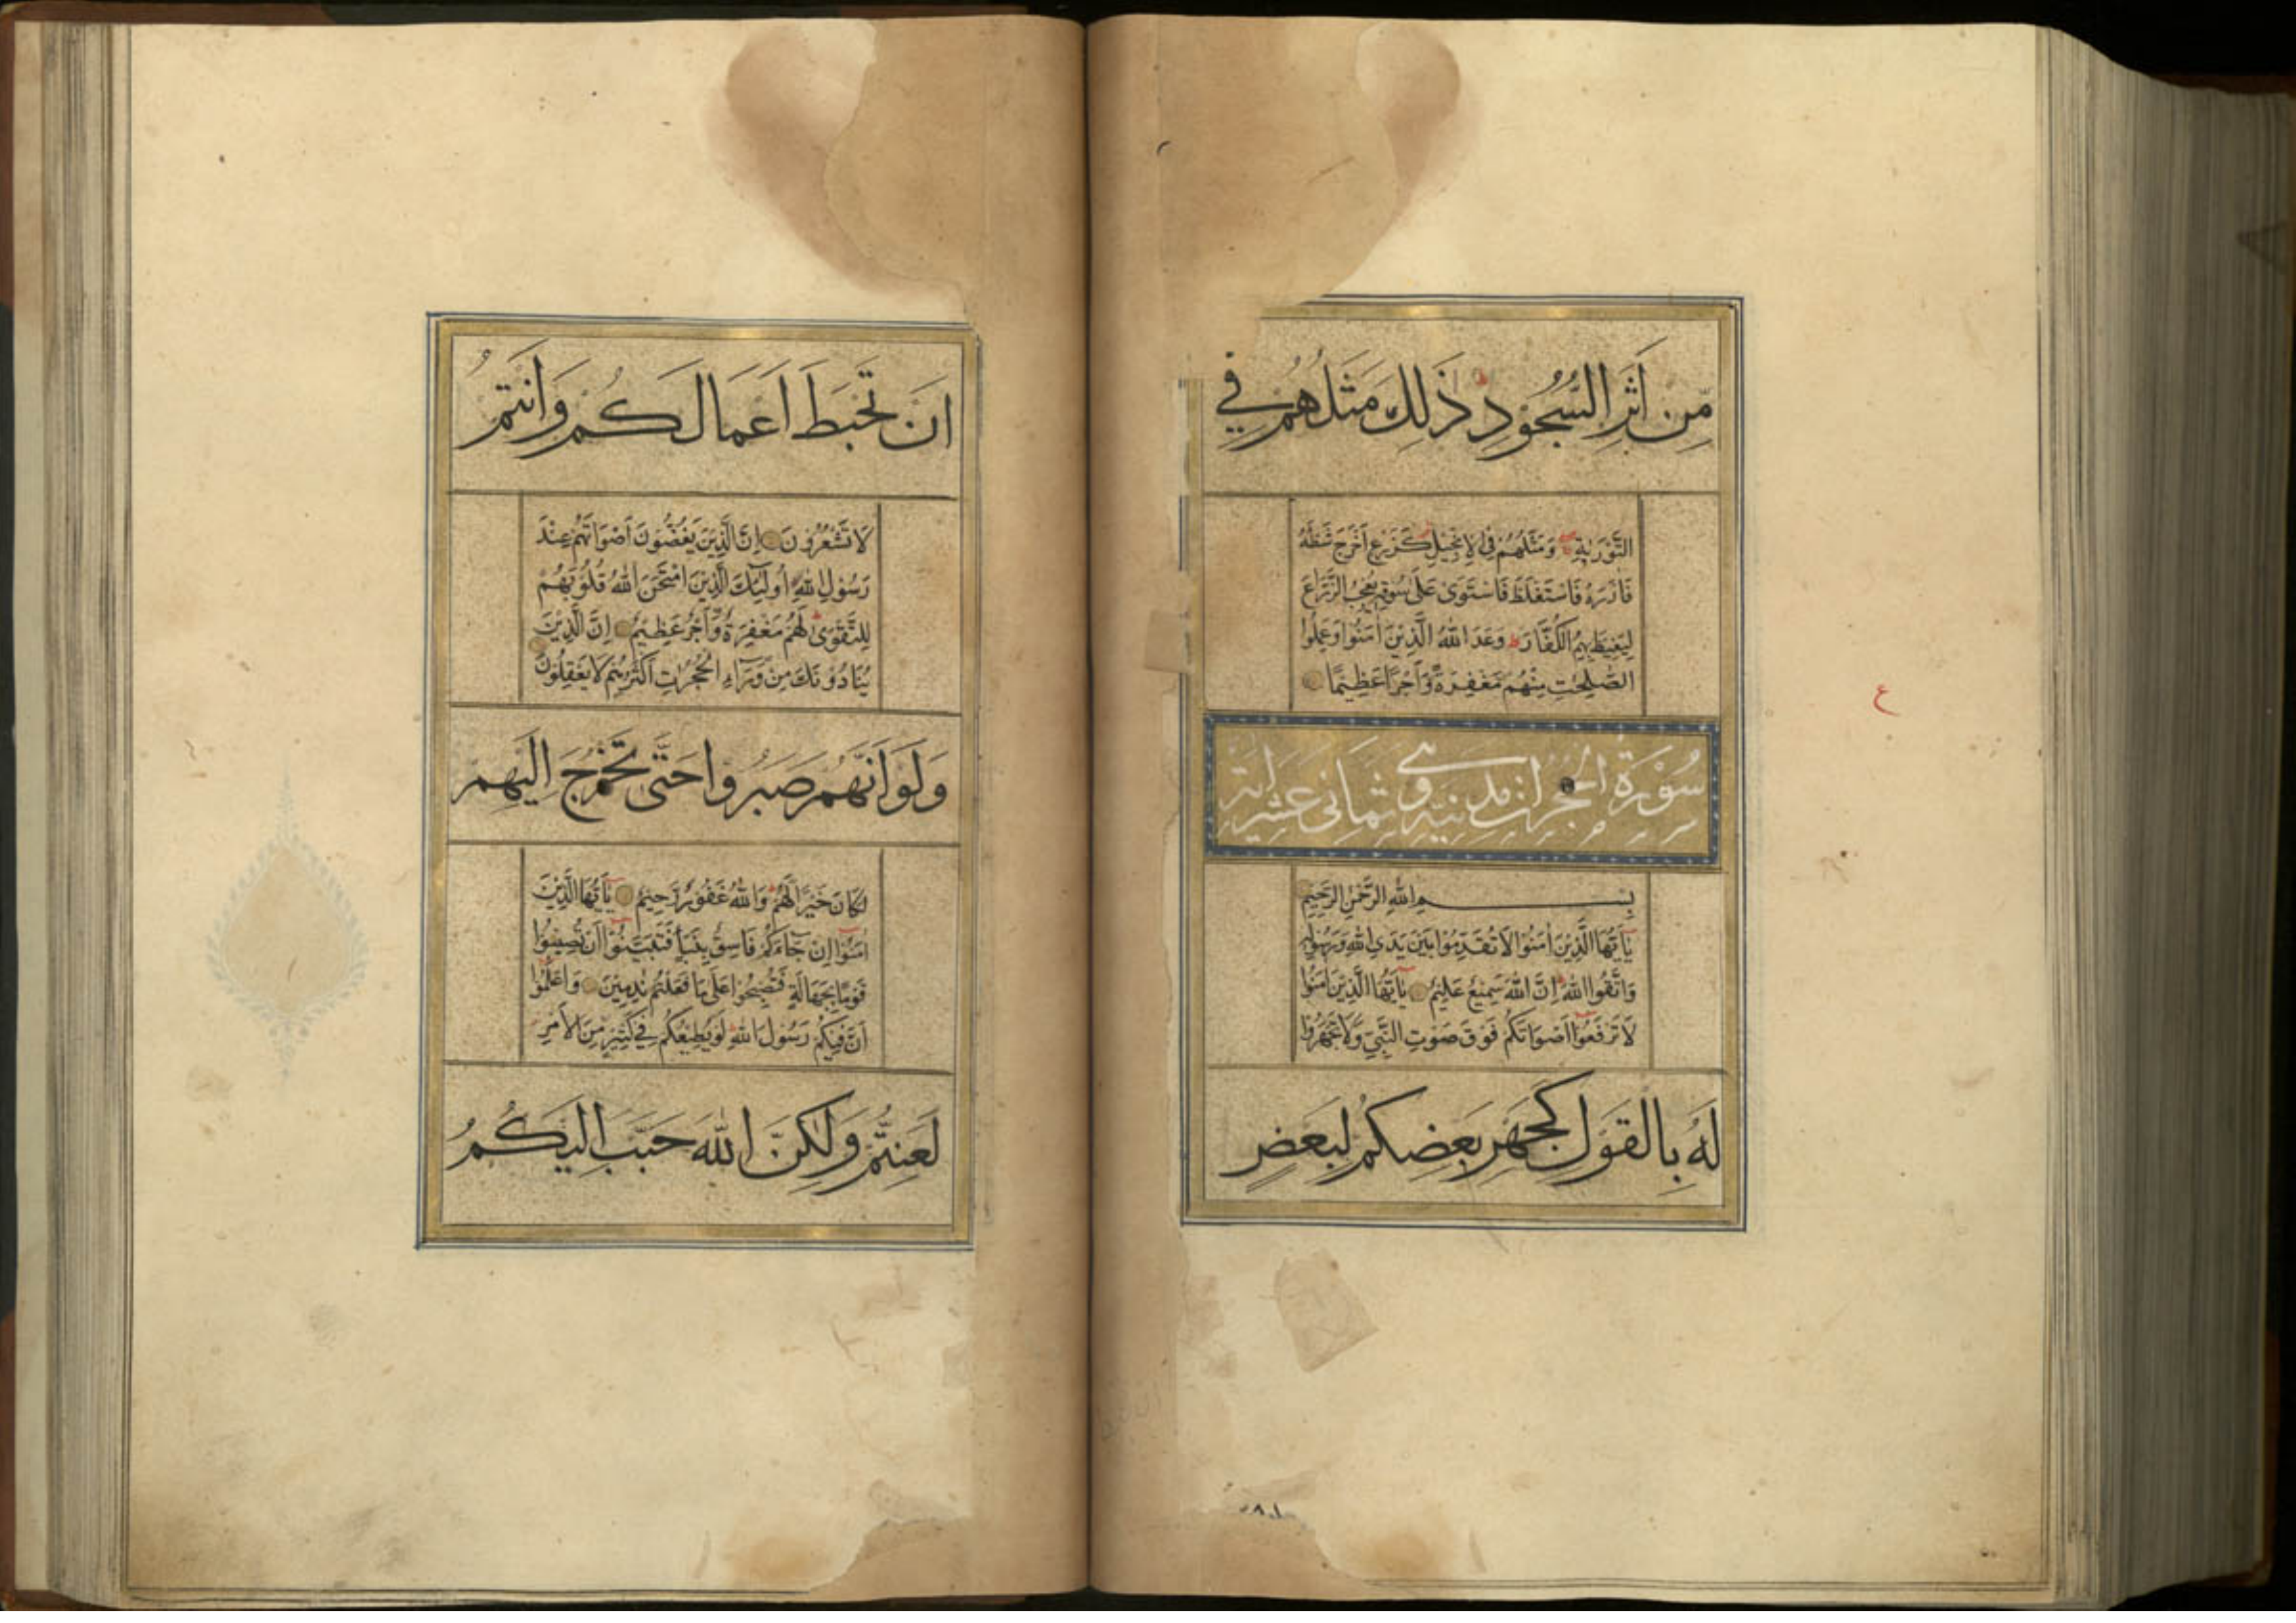 مِّن اَثَرِ السُّجُوْدِ ط ذَٰلِكَ مَثَلُهُمْ فِي
التَّوْرٰىةِ وَمَثَلُهُمْ فِي الْاِنْجِيْلِ كَزَرْعٍ اَخْرَجَ شَطْئَهُ
فَاٰزَرَهُ فَاسْتَغْلَظَ فَاسْتَوٰى عَلٰى سُوْقِهٖ يُعْجِبُ الزُّرَّاعَ
لِيَغِيْظَ بِهِمُ الْكُفَّارَ ط وَعَدَ اللّٰهُ الَّذِيْنَ اٰمَنُوْا وَعَمِلُوا
الصّٰلِحٰتِ مِنْهُمْ مَغْفِرَةً وَّاَجْرًا عَظِيْمًا
ع
سُوْرَةُ الْحُجُرَات مدنية وهي ثماني عشر اية
بِسْمِ اللّٰهِ الرَّحْمٰنِ الرَّحِيْمِ
يٰٓاَيُّهَا الَّذِيْنَ اٰمَنُوْا لَا تُقَدِّمُوْا بَيْنَ يَدَيِ اللّٰهِ وَرَسُوْلِهٖ
وَاتَّقُوا اللّٰهَ ط اِنَّ اللّٰهَ سَمِيْعٌ عَلِيْمٌ يٰٓاَيُّهَا الَّذِيْنَ اٰمَنُوْا
لَا تَرْفَعُوْٓا اَصْوَاتَكُمْ فَوْقَ صَوْتِ النَّبِيِّ وَلَا تَجْهَرُوْا
لَهُ بِالْقَوْلِ كَجَهْرِ بَعْضِكُمْ لِبَعْضٍ
اَنْ تَحْبَطَ اَعْمَالُكُمْ وَاَنْتُمْ
لَا تَشْعُرُوْنَ اِنَّ الَّذِيْنَ يَغُضُّوْنَ اَصْوَاتَهُمْ عِنْدَ
رَسُوْلِ اللّٰهِ اُولٰٓئِكَ الَّذِيْنَ امْتَحَنَ اللّٰهُ قُلُوْبَهُمْ
لِلتَّقْوٰى ط لَهُمْ مَغْفِرَةٌ وَّاَجْرٌ عَظِيْمٌ اِنَّ الَّذِيْنَ
يُنَادُوْنَكَ مِنْ وَّرَآءِ الْحُجُرٰتِ اَكْثَرُهُمْ لَا يَعْقِلُوْنَ
وَلَوْ اَنَّهُمْ صَبَرُوْا حَتّٰى تَخْرُجَ اِلَيْهِمْ
لَكَانَ خَيْرًا لَهُمْ ط وَاللّٰهُ غَفُوْرٌ رَحِيْمٌ يٰٓاَيُّهَا الَّذِيْنَ
اٰمَنُوْٓا اِنْ جَآءَكُمْ فَاسِقٌ بِنَبَأٍ فَتَبَيَّنُوْٓا اَنْ تُصِيْبُوْا
قَوْمًا بِجَهَالَةٍ فَتُصْبِحُوْا عَلٰى مَا فَعَلْتُمْ نٰدِمِيْنَ وَاعْلَمُوْٓا
اَنَّ فِيْكُمْ رَسُوْلَ اللّٰهِ ط لَوْ يُطِيْعُكُمْ فِيْ كَثِيْرٍ مِّنَ الْاَمْرِ
لَعَنِتُّمْ وَلٰكِنَّ اللّٰهَ حَبَّبَ اِلَيْكُمُ